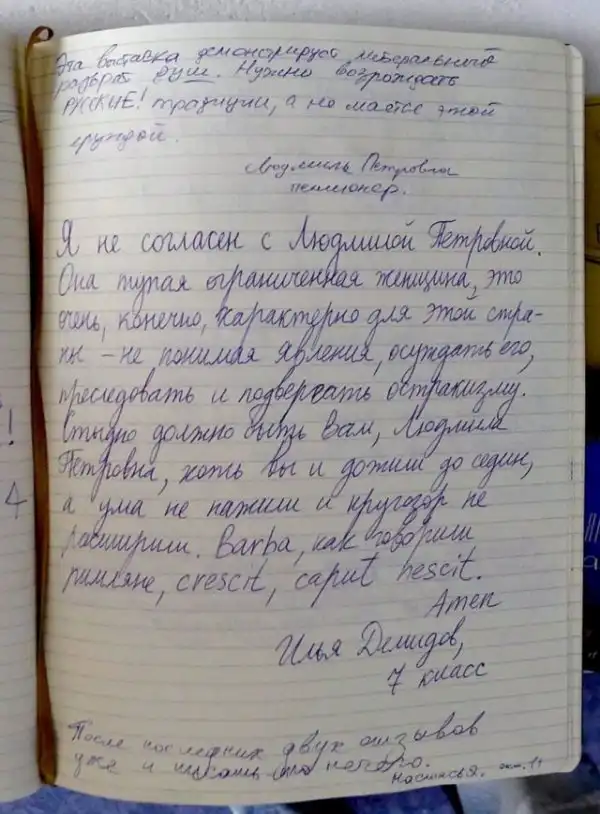 Эта выставка демонстрирует либеральный
разврат душ. Нужно возрождать
РУССКИЕ! традиции, а не маяться этой
ерундой.
Людмила Петровна
пенсионер.
Я не согласен с Людмилой Петровной.
Она тупая ограниченная женщина, это
очень, конечно, характерно для этой стра-
ны – не понимая явления, осуждать его,
преследовать и подвергать остракизму.
Стыдно должно быть Вам, Людмила
Петровна, хоть вы и дожили до седин,
а ума не нажили и кругозор не
расширили. Barba, как говорили
римляне, crescit, caput nescit.
Amen
Илья Демидов,
7 класс
После последних двух отзывов
уже и писать-то нечего.
Настасья.
!
4